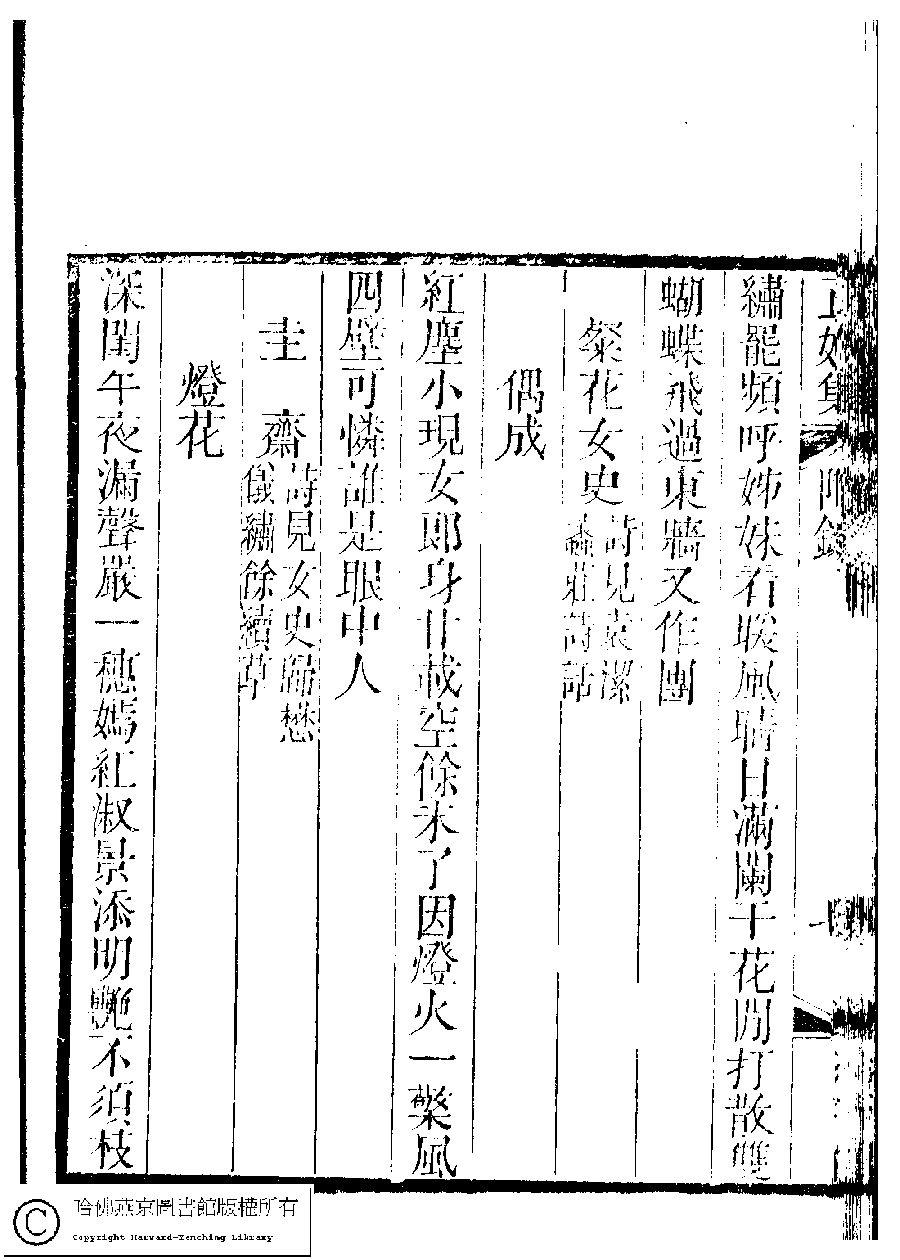 繡罷頻呼姊妹看暖風晴日滿闌干花閒打散雙
蝴蝶飛過東牆又作團
粲花女史 詩見袁潔
蠡莊詩話
偶成
紅塵小現女郎身廿載空餘未了因燈火一檠風
四壁可憐誰是眼中人
圭齋 詩見女史歸懋
儀繡餘續草
燈花
深閨午夜漏聲嚴一穗嫣紅淑景添明艷不須枝
哈佛燕京圖書館版權所有
Copyright Harvard-Yenching Library